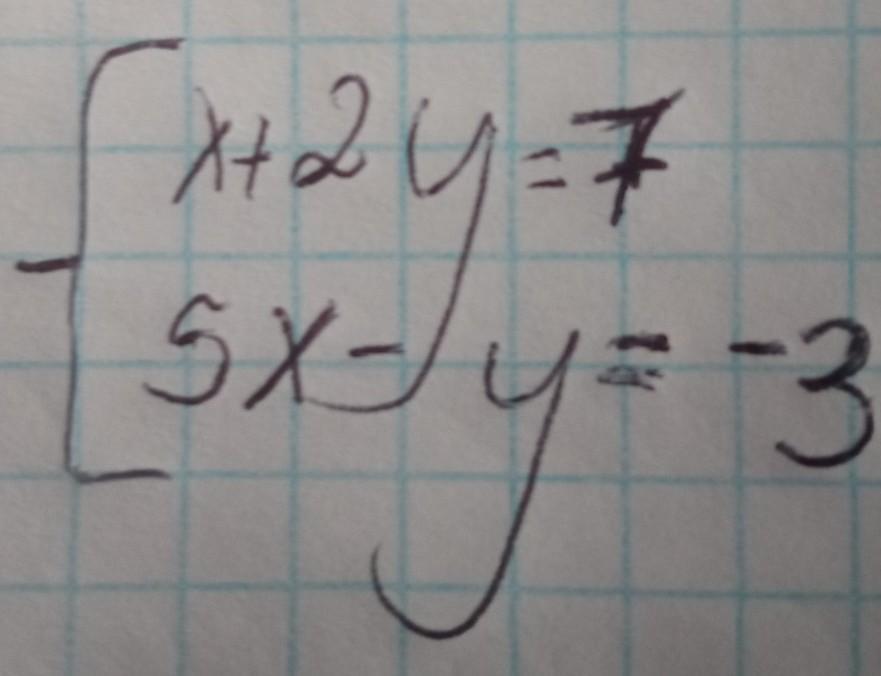 x+2y=7
5x-y=-3